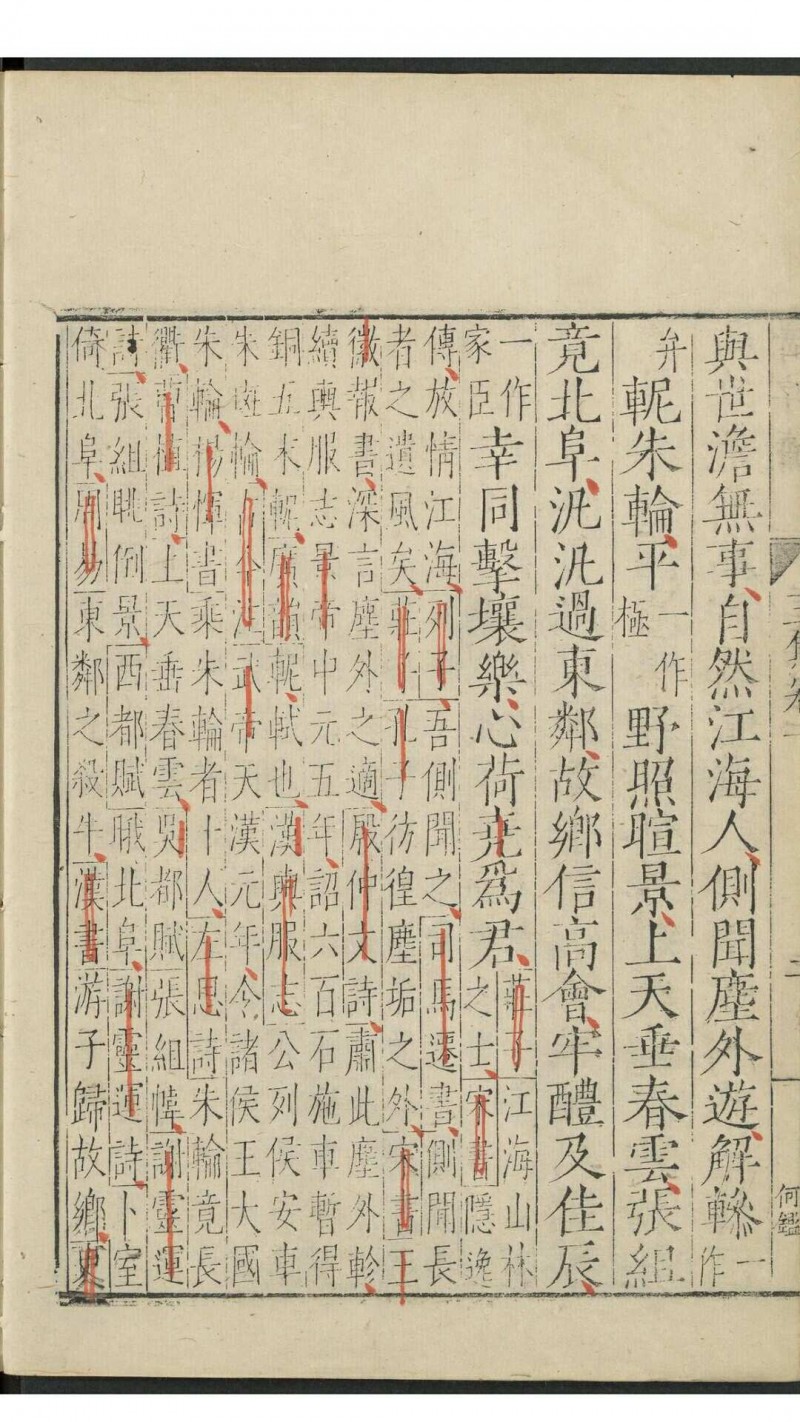 與世澹無事自然江海人側聞塵外遊解軫一作
弁軛朱輪平一作極野照暄景上天垂春雲張組
竟北阜汎汎過東鄰故鄉信高會牢醴及佳辰
一作家臣幸同擊壤樂心荷堯爲君莊子江海山林之士宋書隱逸
傳放情江海列子吾側聞之司馬遷書側聞長
者之遺風矣莊子孔子彷徨塵垢之外宋書王
徽報書深言塵外之適殷仲文詩肅此塵外軫
續輿服志景帝中元五年詔六百石施車暫得
銅五末軛廣韻軛軾也漢輿服志公列侯安車
朱斑輪古今注武帝天漢元年令諸侯王大國
朱輪楊惲書乘朱輪者十人左思詩朱輪竟長
衢曹植詩上天垂春雲吳都賦張組幃謝靈運
詩張組眺倒景西都賦睋北阜謝靈運詩卜室
倚北阜周易東鄰之殺牛漢書游子歸故鄉東